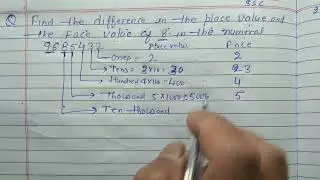 SSC
Q Find the difference in the place value and
the Face value of 8 in the numeral
9685432 Place value Face
Ones = 2 2
Tens = 3x10 = 30 3
Hundred 4x10 = 400 4
Thousand 5x1000 = 5000 5
Ten thousand